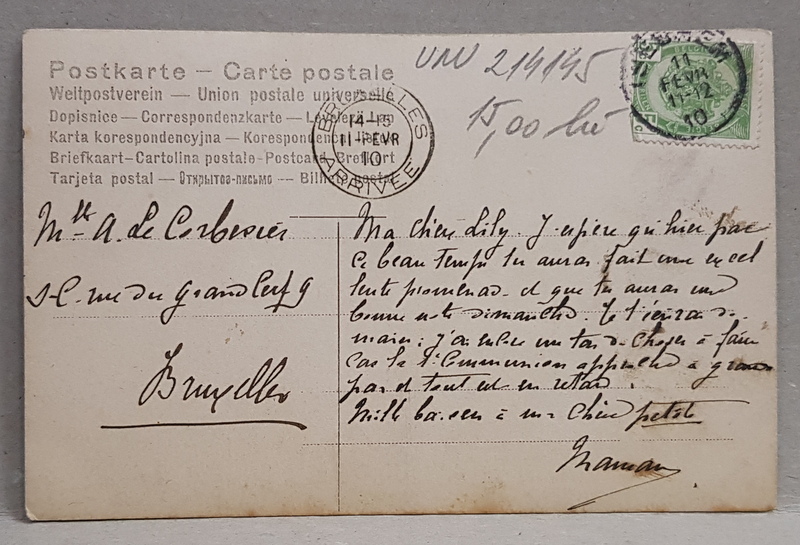 Postkarte – Carte postale
Weltpostverein – Union postale universelle
Dopisnice – Correspondenzkarte – Levelezö-Lap
Karta korespondencyjna – Korespondenční lístek
Briefkaart – Cartolina postale – Postcard Brefkort
Tarjeta postal – Открытое письмо – Bilhete postal
BRUXELLES
14-15
11-FEVR
10
ARRIVÉE
UNV 214145
15,00
11
FEVR
11-12
10
Mlle A. de Corbesier
rue du Grand Cerf 9
Bruxelles
Ma chère Lily. J'espère qu'hier par
ce beau temps tu auras fait une excel
lente promenade et que tu auras une
bonne note dimanche. Je t'écrirai de
main; j'ai encore un tas de choses à faire
car la 1e Communion approche à grands
pas et tout est en retard.
Mille baisers à ma chère petite
Maman